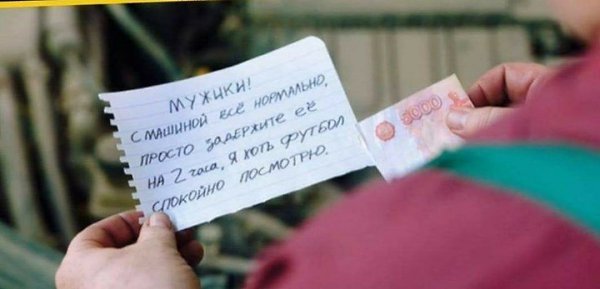 МУЖИКИ!
С МАШИНОЙ ВСЁ НОРМАЛЬНО,
ПРОСТО ЗАДЕРЖИТЕ ЕЁ
НА 2 часа, Я ХОТЬ ФУТБОЛ
СПОКОЙНО ПОСМОТРЮ.
5000